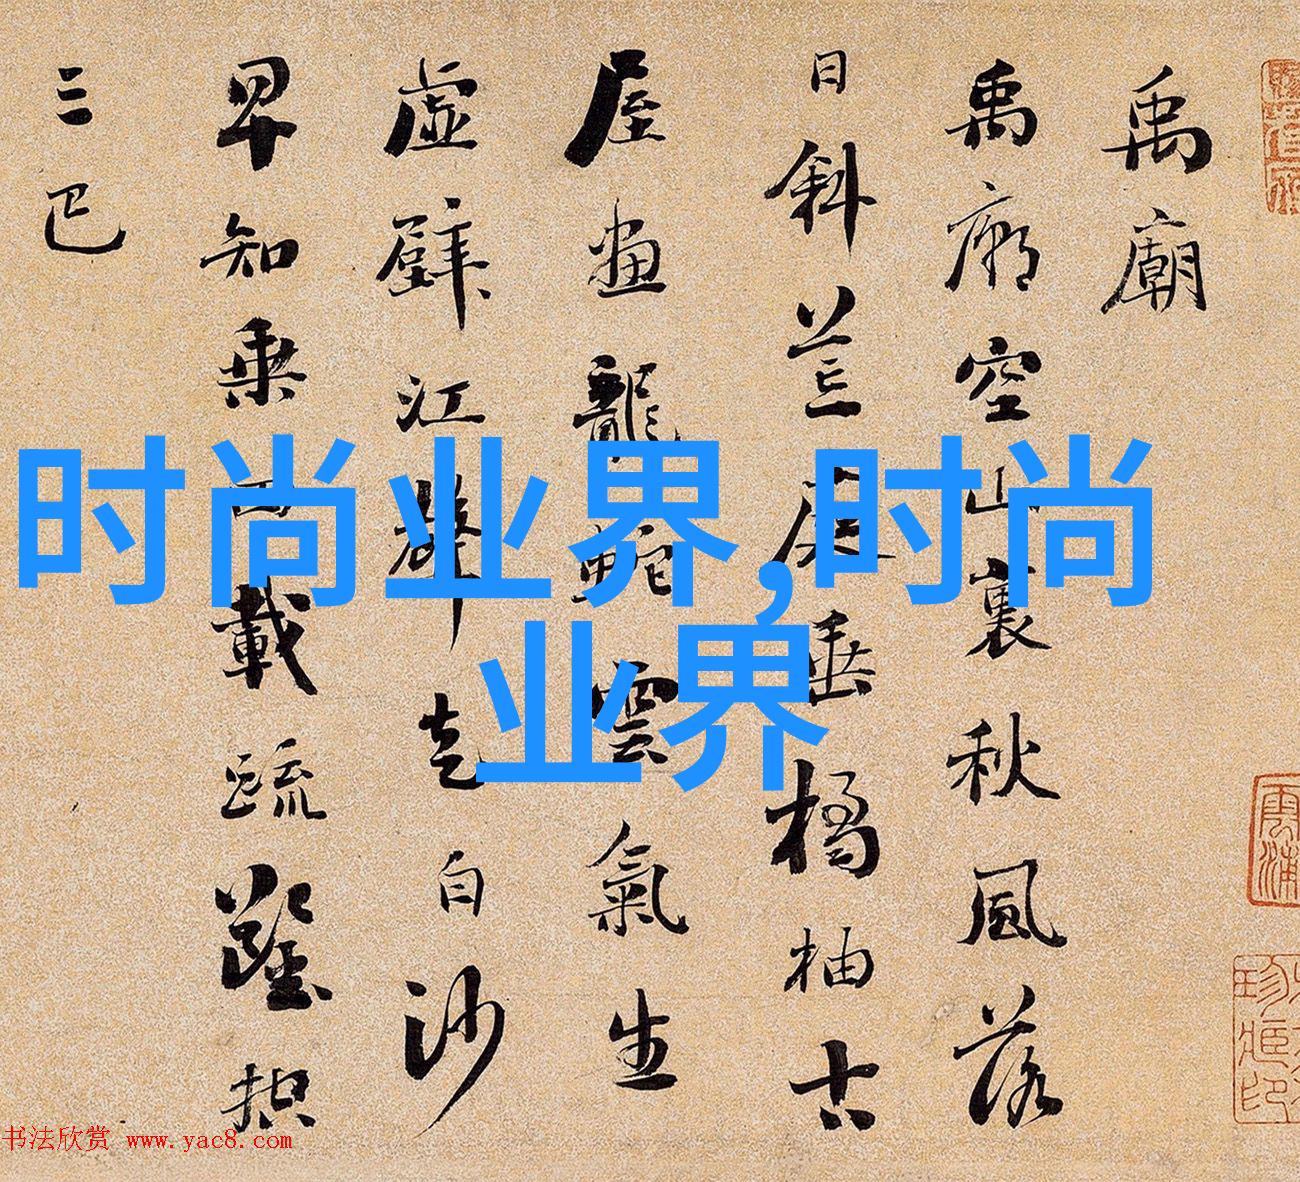 禹廟
禹廟空山裏秋風落
日斜荒庭垂橘柚古
屋畫龍蛇雲氣生
虛壁江聲走白沙
早知乘四載疏鑿控
三巴
时尚业界,时尚
业界
书法欣赏 www.yac8.com